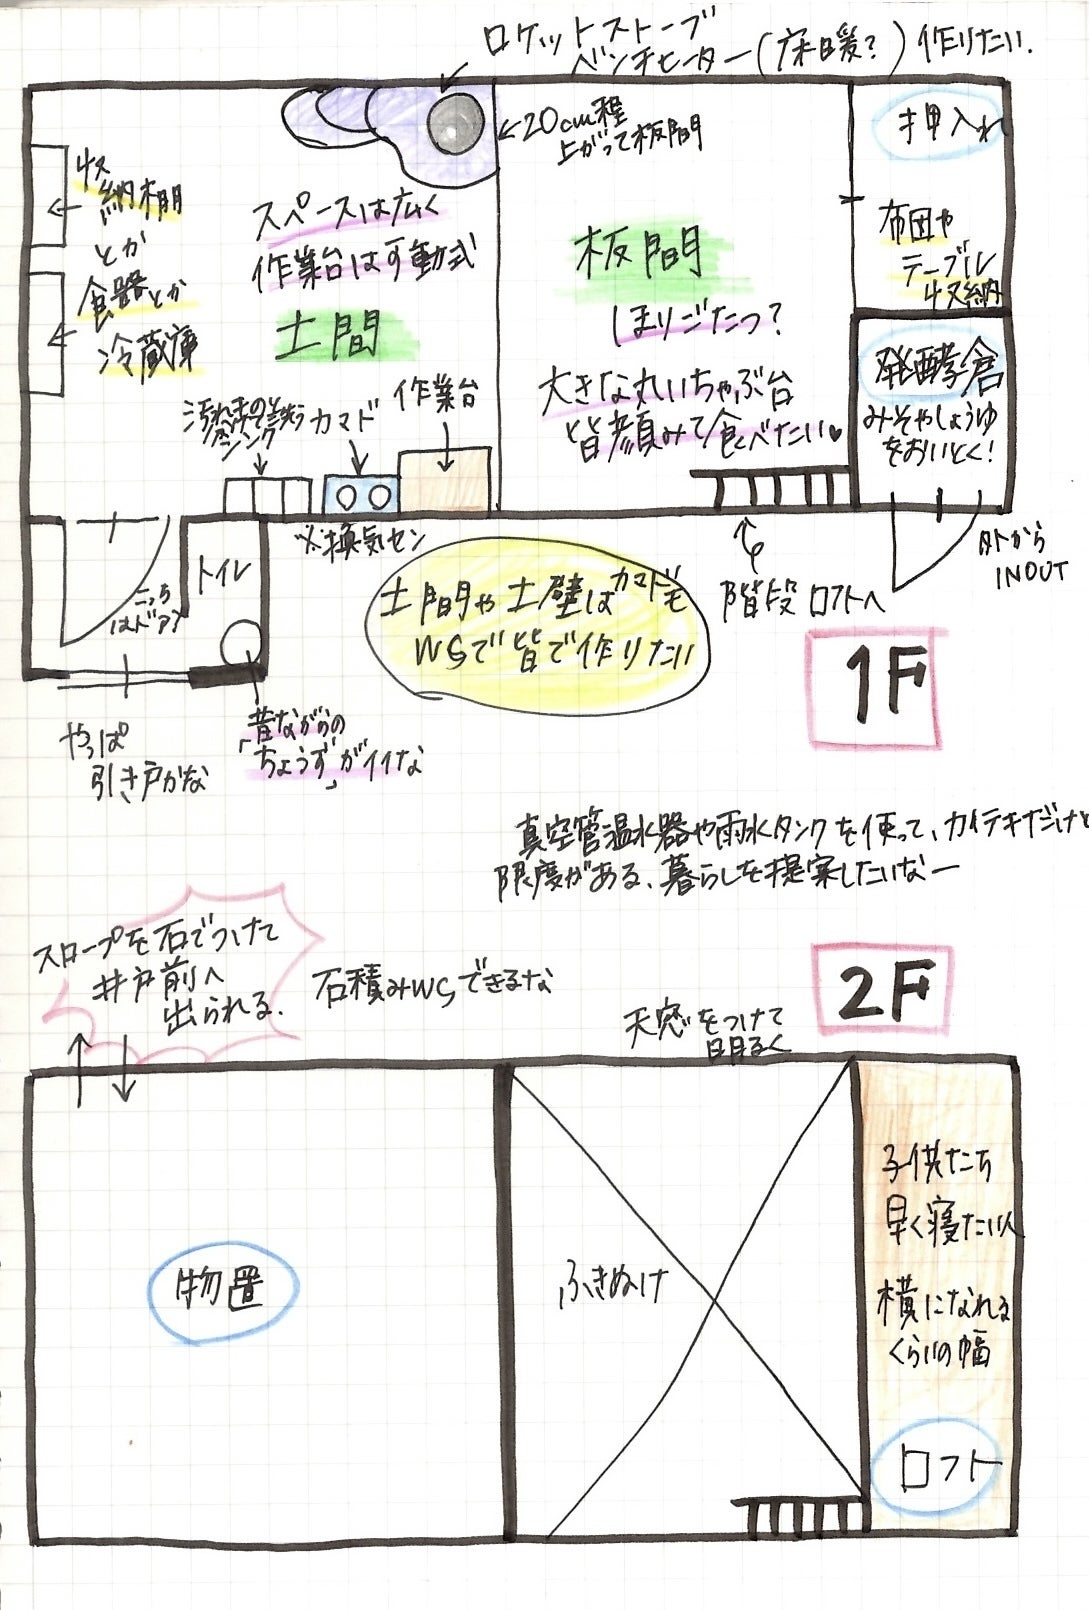 ロケットストーブ
ベンチヒーター(床暖?)作りたい.
←20cm程
上がって板間
押入れ
収
納棚
とか
食器とか
冷蔵庫
スペースは広く
作業台は可動式
土間
板間
ほりごたつ?
大きな丸いちゃぶ台
皆顔みて食べたい♥
布団や
テーブル
収納
発酵倉
みそやしょうゆ
をおいとく!
汚れもの洗う
シンク
カマド
作業台
※換気セン
トイレ
こっち
はドア
土間や土壁はカマドも
WSで皆で作りたい
階段ロフトへ
外から
INOUT
1F
やっぱ
引き戸かな
昔ながらの
「ちょうず」がイイな
真空管温水器や雨水タンクを使って、カイテキだけど
限度がある、暮らしを提案したいなー
スロープを石でつけて
井戸前へ
出られる.
石積みWSできるな
2F
天窓をつけて
明るく
物置
ふきぬけ
子供たち
早く寝たい人
横になれる
くらいの幅
ロフト